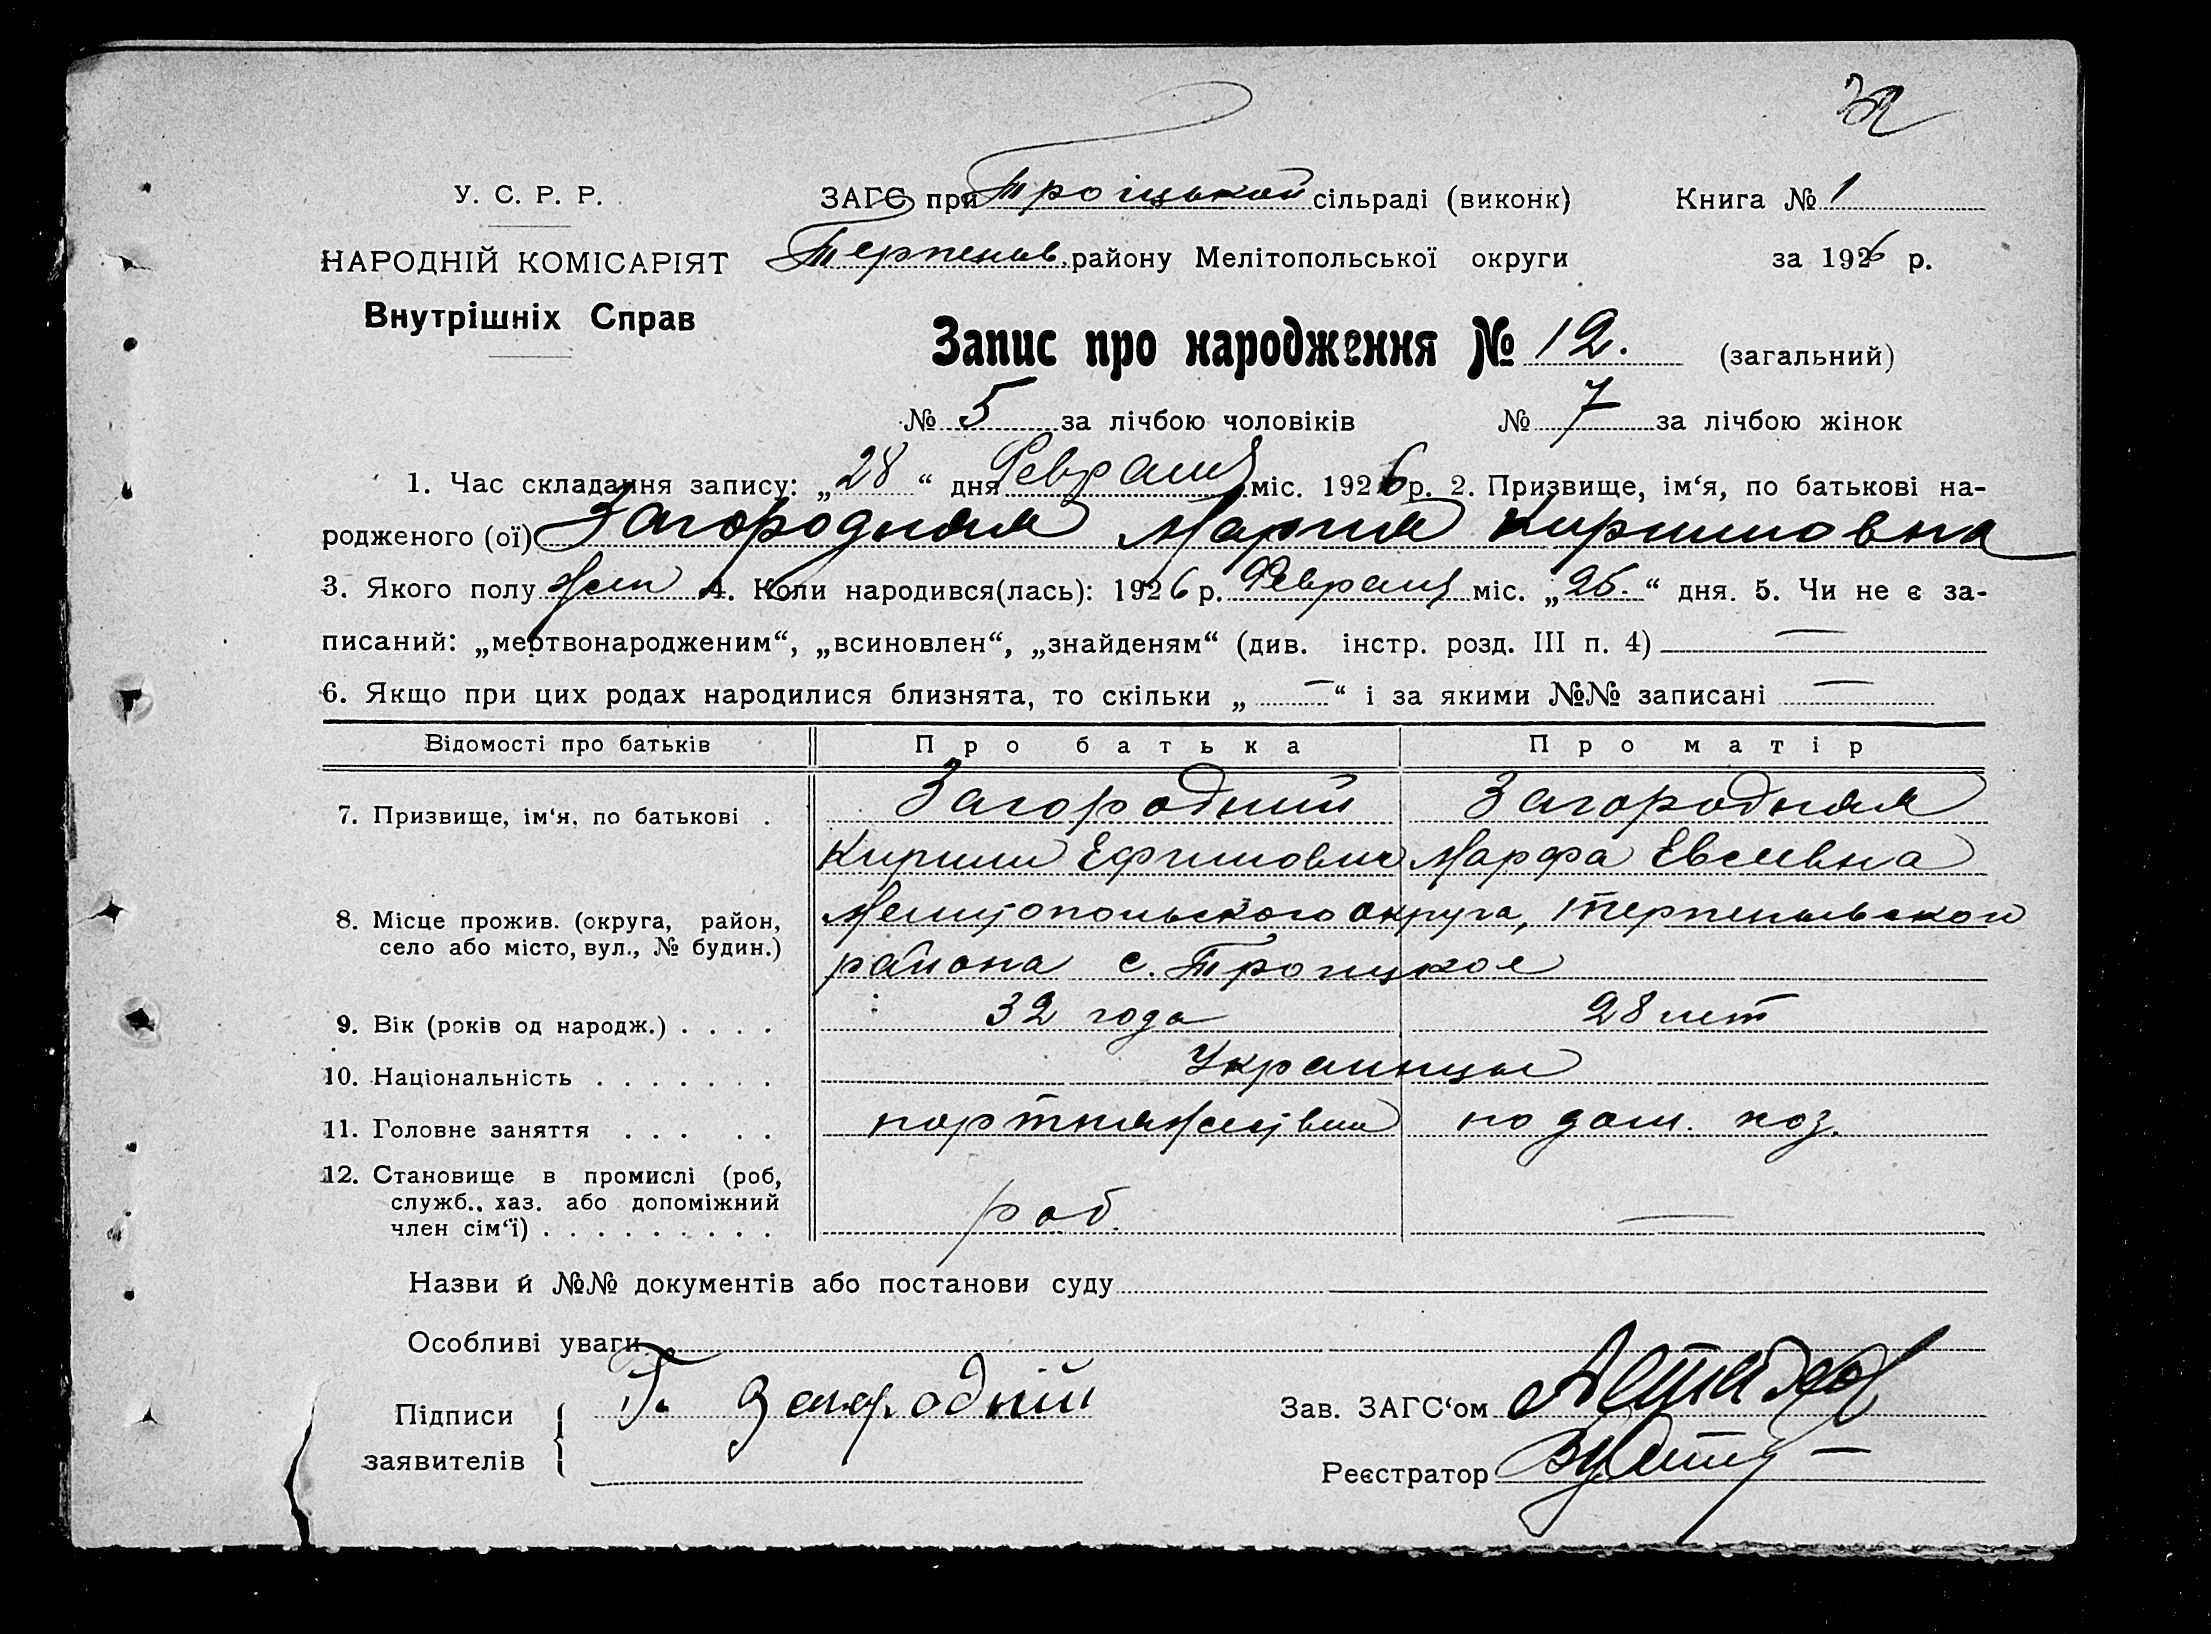 32
У. С. Р. Р. ЗАГС при Троицькой сільраді (виконк) Книга № 1
НАРОДНІЙ КОМІСАРІЯТ Терпеньев. району Мелітопольської округи за 1926 р.
Внутрішніх Справ
Запис про народження № 12. (загальний)
№ 5 за лічбою чоловіків № 7 за лічбою жінок
1. Час складання запису: „28“ дня Февраля міс. 1926 р. 2. Призвище, ім‘я, по батькові на-
родженого (ої) Загородная Мария Кирилловна
3. Якого полу жен 4. Коли народився(лась): 1926 р. Февраля міс. „25.“ дня. 5. Чи не є за-
писаний: „мертвонародженим“, „всиновлен“, „знайденям“ (див. інстр. розд. III п. 4) —
6. Якщо при цих родах народилися близнята, то скільки „—“ і за якими №№ записані —
Відомості про батьків Про батька Про матір
7. Призвище, ім‘я, по батькові . Загородний Загородная
Кирилл Ефимович Марфа Евсеевна
8. Місце прожив. (округа, район, Мелитопольского округа, Терпеньевского
село або місто, вул., № будин.) района с. Троицкое
9. Вік (років од народж.) . . . . 32 года 28 лет
10. Національність . . . . . . . Украинцы
11. Головне заняття . . . . . по дом. хоз.
12. Становище в промислі (роб,
служб., хаз. або допоміжний
член сім‘ї) . . . . . . . . . роб. —
Назви й №№ документів або постанови суду
Особливі уваги
Підписи Загородній Зав. ЗАГС‘ом
заявителів Реєстратор